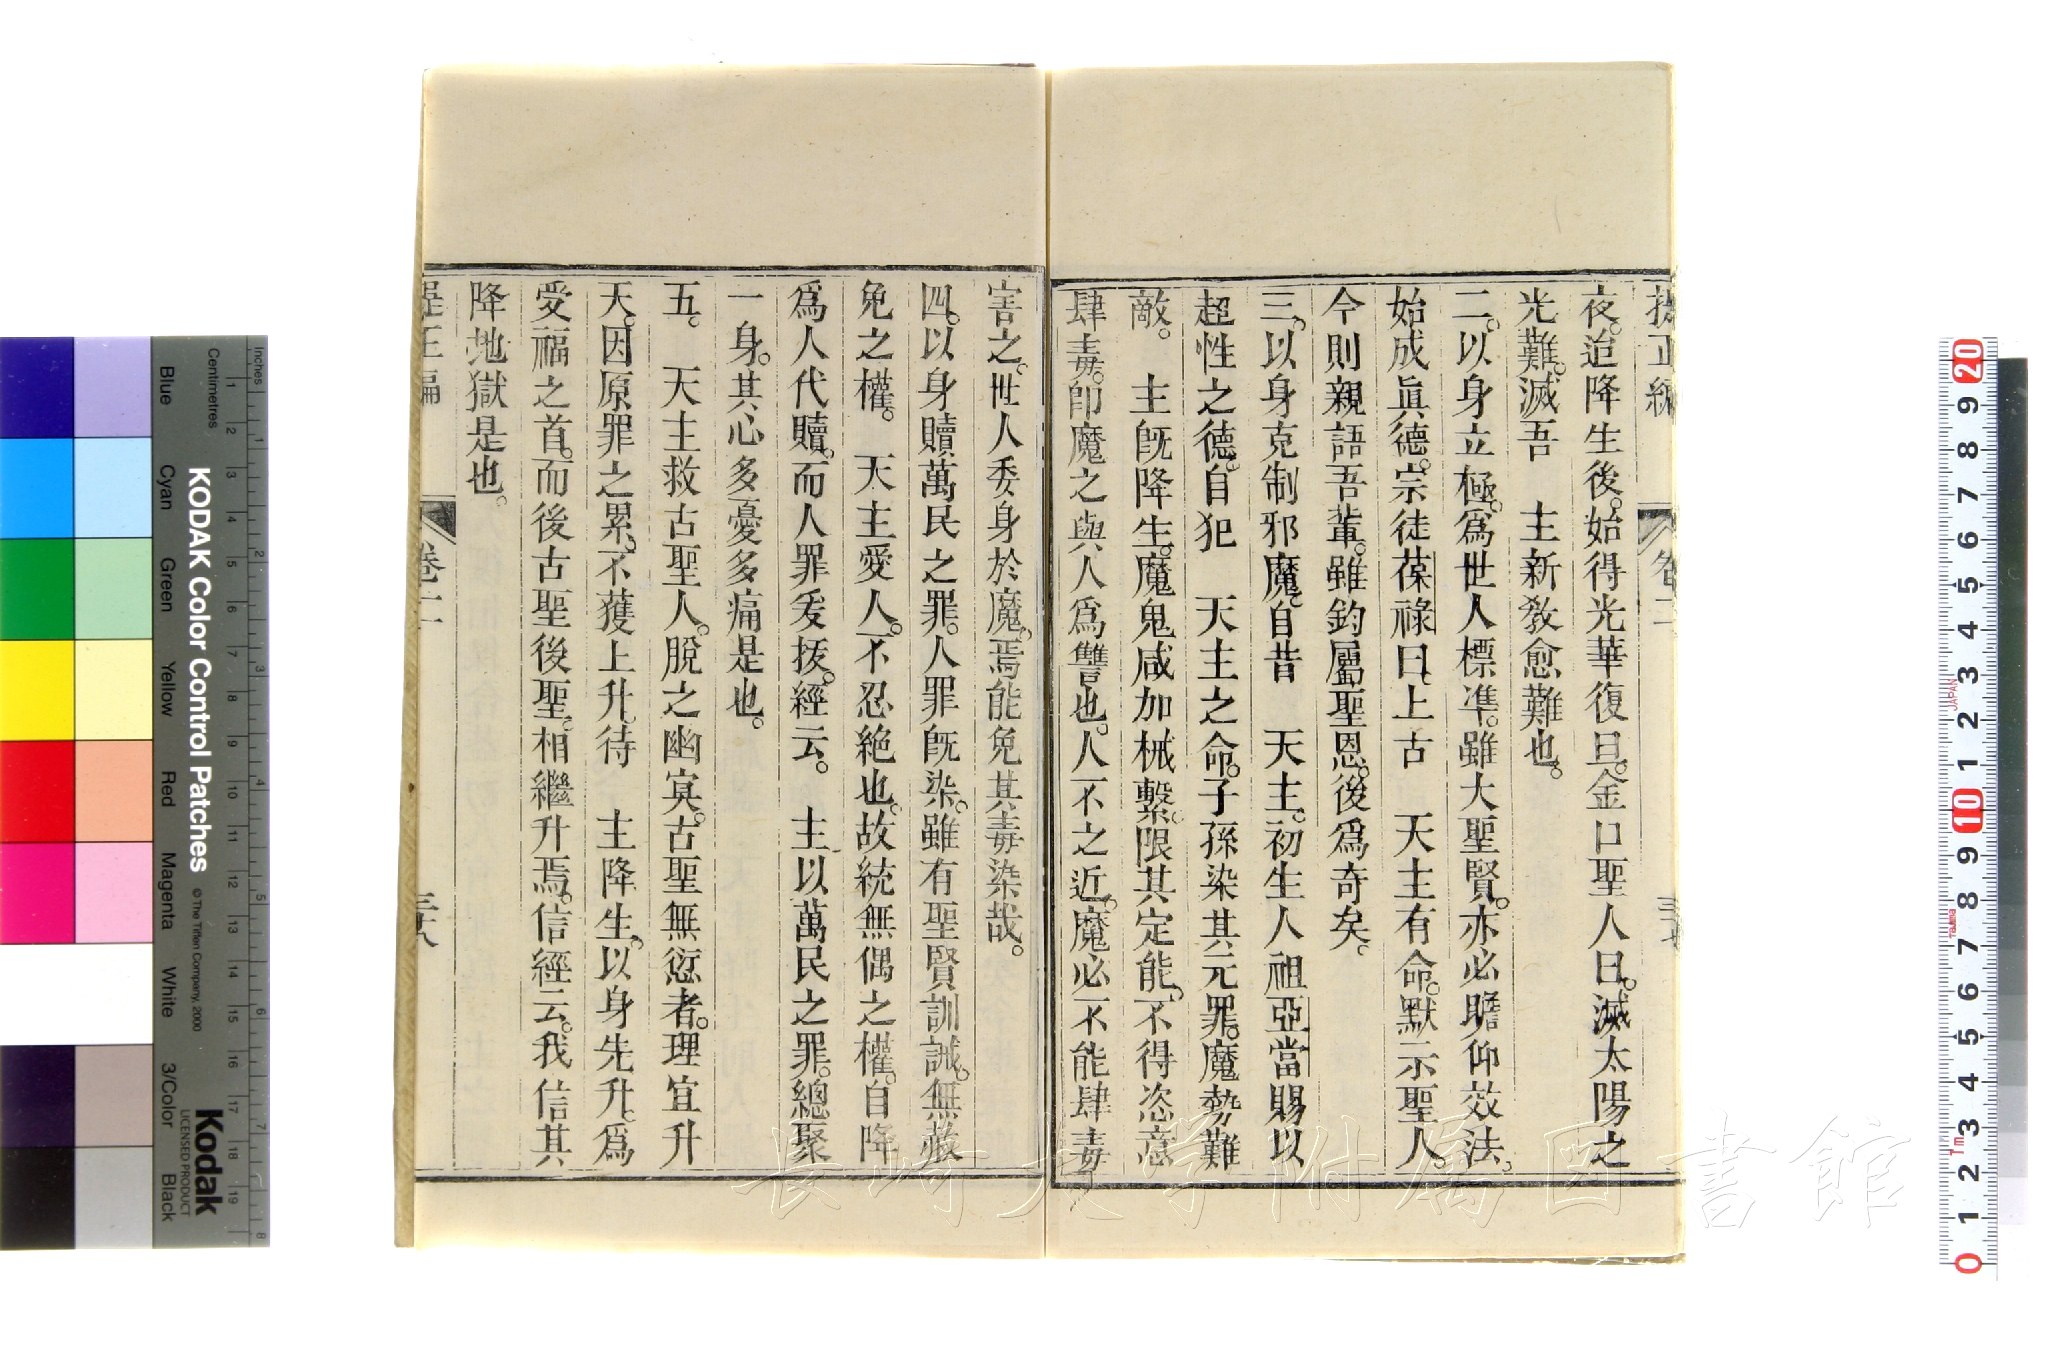 提正編 卷二 三十七
夜。迨降生後。始得光華復旦。金口聖人曰。滅太陽之
光難。滅吾　主新敎愈難也。
二。以身立極。爲世人標準。雖大聖賢。亦必瞻仰效法。
始成眞德。宗徒葆祿曰。上古　天主有命。默示聖人。
今則親語吾輩。雖鈞屬聖恩。後爲奇矣。
三。以身克制邪魔。自昔　天主。初生人祖亞當賜以
超性之德。自犯　天主之命。子孫染其元罪。魔勢難
敵。　主旣降生。魔鬼咸加械繫。限其定能。不得恣意
肆毒。卽魔之與人爲讐也。人不之近。魔必不能肆毒
害之。世人委身於魔。焉能免其毒染哉。
四。以身贖萬民之罪。人罪旣染。雖有聖賢訓誡。無赦
免之權。　天主愛人。不忍絶也。故統無偶之權。自降
爲人代贖。而人罪爰拔。經云。　主以萬民之罪。總聚
一身。其心多憂多痛是也。
五。　天主救古聖人。脫之幽冥。古聖無愆者。理宜升
天。因原罪之累。不獲上升。待　主降生。以身先升。爲
受福之首。而後古聖後聖。相繼升焉。信經云。我信其
降地獄是也。
提正編 卷二 三十八
KODAK Color Control Patches
© The Tiffen Company, 2000
Kodak
LICENSED PRODUCT
Inches
Centimetres
Blue
Cyan
Green
Yellow
Red
Magenta
White
3/Color
Black
長崎大学附属図書館